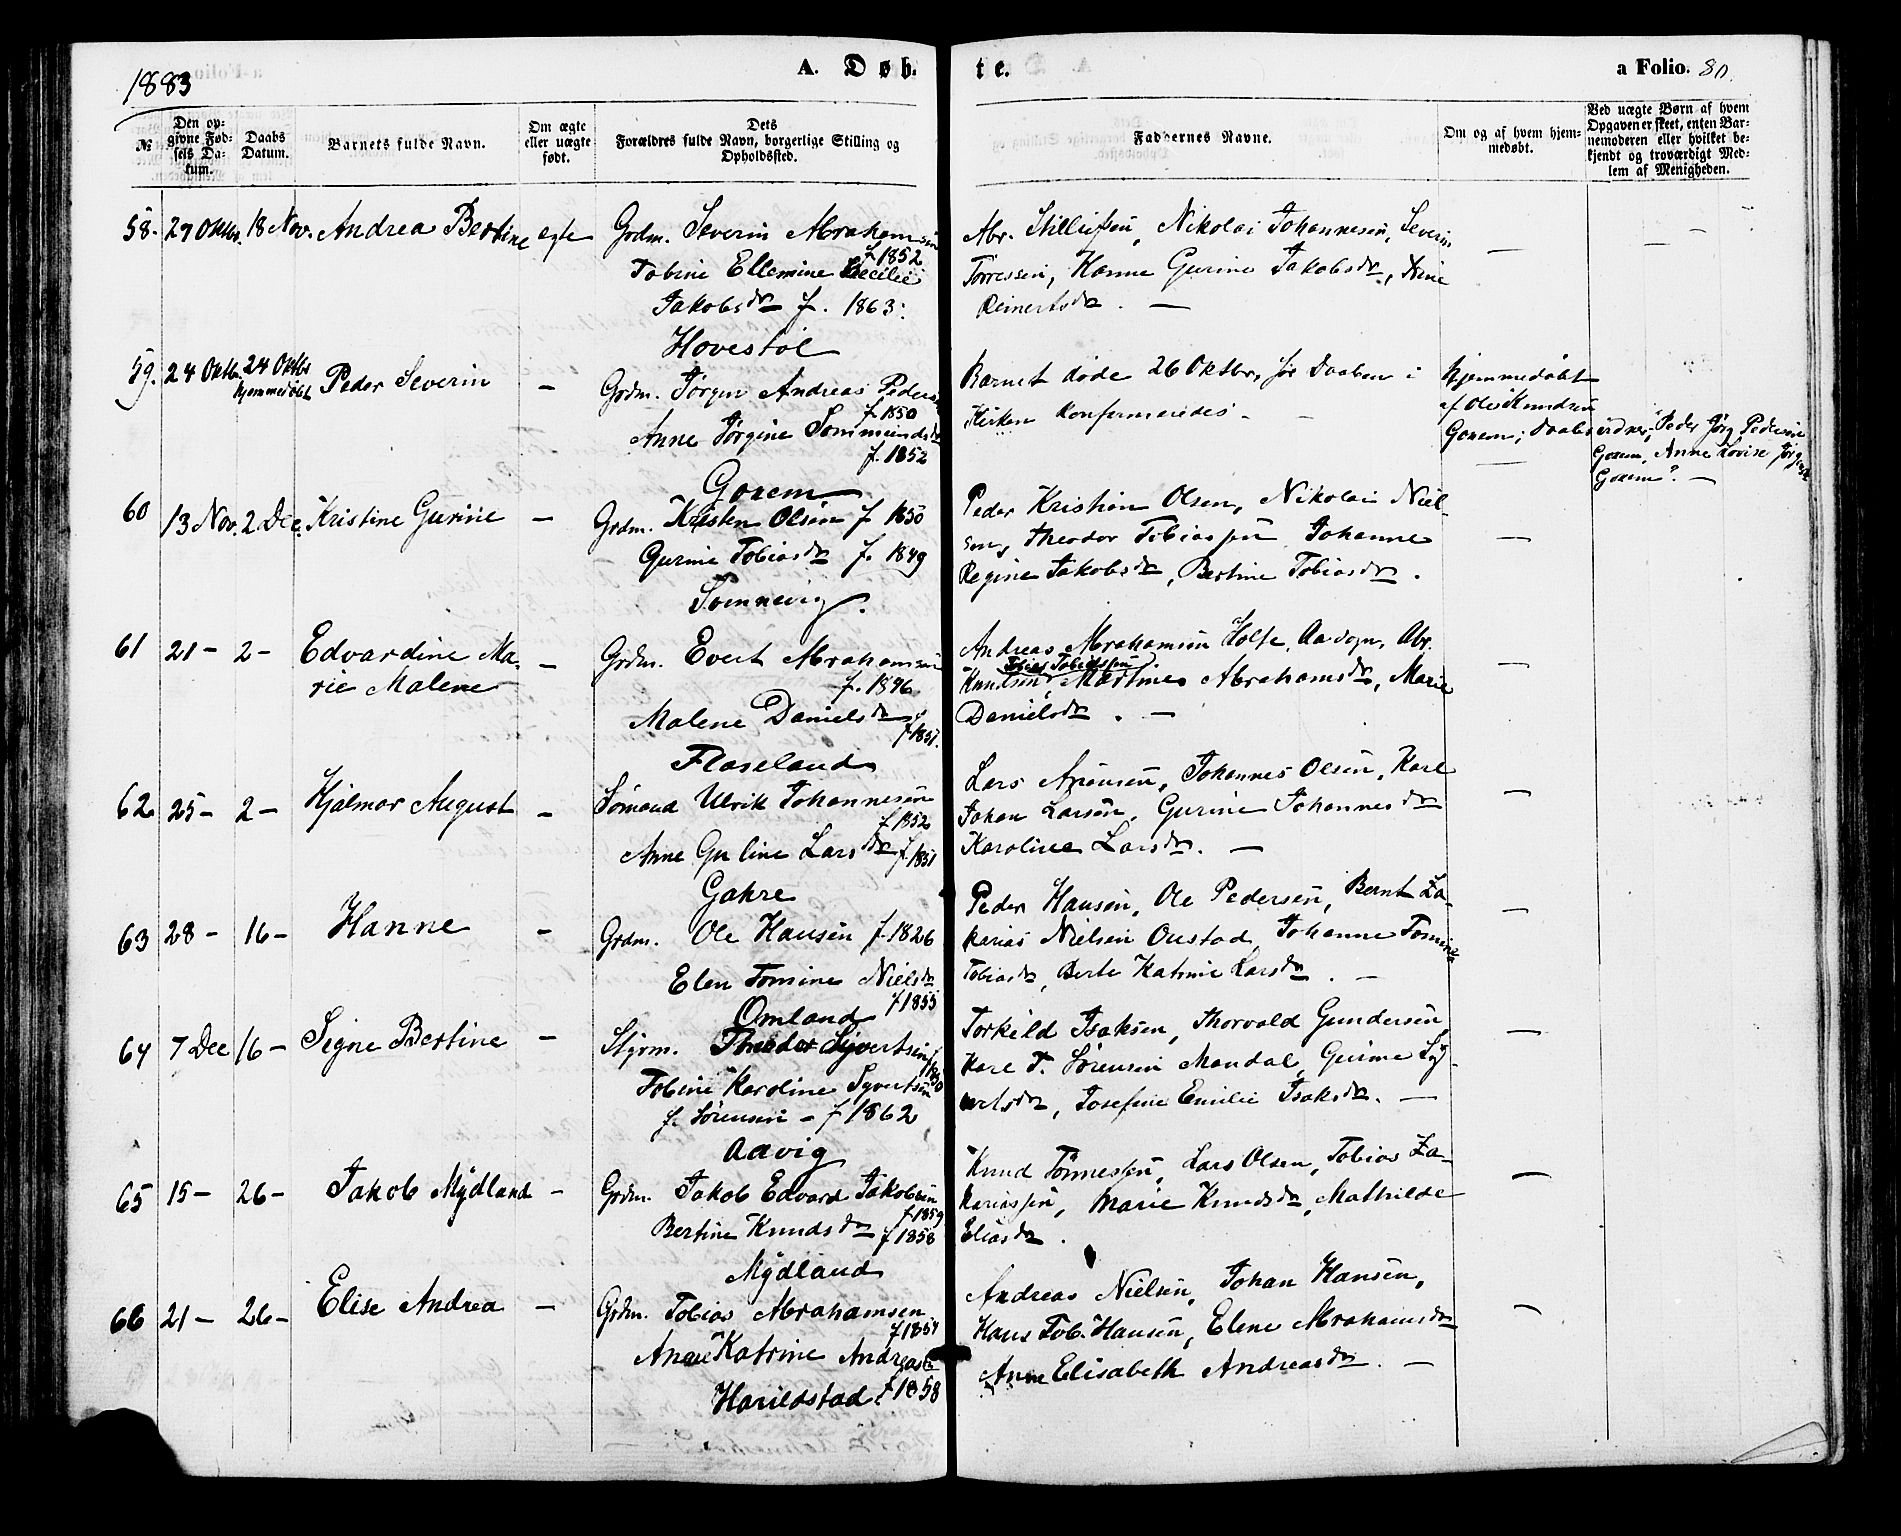 1883
A. Døb- te.
a Folio. 80.
№
Den opgivne Fødsels Datum.
Daabs Datum.
Barnets fulde Navn.
Om ægte eller uægte født.
Dets Forældres fulde Navn, borgerlige Stilling og Opholdssted.
Faddernes Navne.
Om og af hvem hjemmedøbt.
Ved uægte Børn af hvem Opgaven er skeet, enten Barnemoderen eller hvilket bekjendt og troværdigt Medlem af Menigheden.
58. 27 Oktbr. 18 Nov. Andrea Bertine egte Grdm. Severin Abrahamsen
f 1852
Tobine Ellemine Cecilie
Jakobsdr f. 1863.
Hovestøl
Abr. Stillufsen, Nikolai Johannesen, Severin
Tørressen, Hanne Gurine Jakobsdr,
Reinertsdr. —
59. 24 Oktbr 24 Oktbr hjemmedøbt Peder Severin — Grdm. Jørgen Andreas Peders
f 1850
Anne Jørgine Sommundsdr
f. 1852
Goxem
Barnet døde 26 Oktbr, før Daaben i
Kirken konfirmeredes. —
hjemmedøbt
af Ole Knudsen
Goxem; Daabsvidner, Peder Jørg Pedersen
Goxem, Anne Lovise Jørg
Goxem? —
60 13 Nov. 2 Dec. Kristine Gurine — Grdm. Kristen Olsen f 1850
Gurine Tobiasdr f. 1849
Svennevig.
Peder Kristian Olsen, Nikolai Niel-
sen, Theodor Tobiassen, Johanne
Regine Jakobsdr, Bertine Tobiasdr. —
61 21 — 2 — Edvardine Ma- —
rie Malene
Grdm. Evert Abrahamsen
f. 1846
Malene Danielsdr
f 1851.
Flaseland
Andreas Abrahamsen Holte, Aa sogn, Abr.
Tobias Tobiassen
Knudsen, Martine Abrahamsdr, Marie
Danielsdr. —
62 25 — 2 — Hjalmar August — Sømand Ulrik Johannesen
f 1852
Anne Guline Larsdr f 1851
Gahre
Lars Aronsen, Johannes Olsen, Karl
Johan Larsen, Gurine Johannesdr
Karoline Larsdr. —
63 28 — 16 — Hanne — Grdm. Ole Hansen f 1826
Elen Tomine Nielsdr
f 1855
Omland
Peder Hansen, Ole Pedersen, Bernt Za-
karias Nielsen Oustad, Johanne Tomine
Tobiasdr, Berte Katrine Larsdr. —
64 7 Dec 16 — Signe Bertine — Styrm. Theodor Syvertsen
f 1850
Tobine Karoline Syvertsen
f. Sørensen — f 1862
Aavig
Torkild Isaksen, Thorvald Gundersen,
Karl T. Sørensen Mandal, Gurine Sy-
vertsdr, Josefine Emilie Isaksdr. —
65 15 — 26 — Jakob Mydland — Grdm. Jakob Edvard Jakobsen
f 1859
Bertine Knudsdr f 1858
Mydland
Knud Tønnessen, Lars Olsen, Tobias Za-
kariassen, Marie Knudsdr, Mathilde
Eliasdr. —
66 21 — 26 — Elise Andrea — Grdm. Tobias Abrahamsen
f 1854
Anne Katrine Andreasdr
Harildstad f 1858
Andreas Nielsen, Johan Hansen,
Hans Tob. Hansen, Elene Abrahamsdr
Anne Elisabeth Andreasdr. —